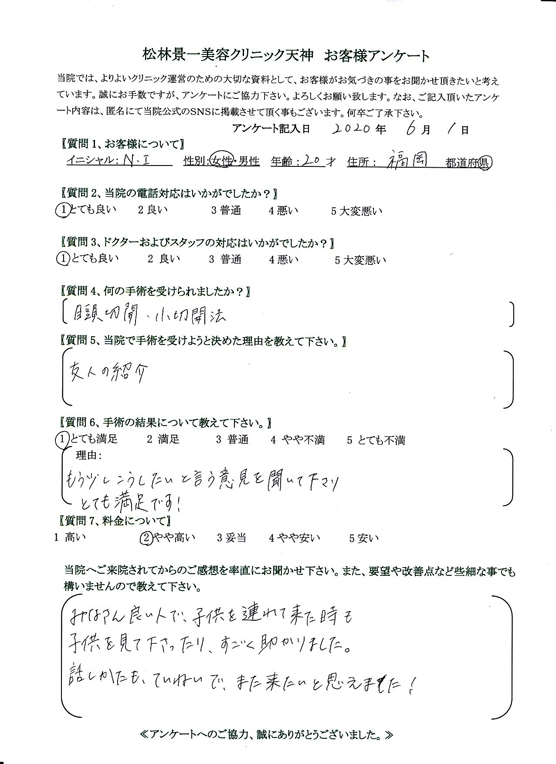 松林景一美容クリニック天神　お客様アンケート
当院では、よりよいクリニック運営のための大切な資料として、お客様がお気づきの事をお聞かせ頂きたいと考え
ています。誠にお手数ですが、アンケートにご協力下さい。よろしくお願い致します。なお、ご記入頂いたアンケ
ート内容は、匿名にて当院公式のSNSに掲載させて頂く事もございます。何卒ご了承下さい。
アンケート記入日　2020 年　6 月　1 日
【質問1、お客様について】
イニシャル：N.I　性別：女性・男性　年齢：20才　住所：福岡　都道府県
【質問2、当院の電話対応はいかがでしたか？】
1とても良い　2 良い　3 普通　4 悪い　5 大変悪い
【質問3、ドクターおよびスタッフの対応はいかがでしたか？】
1とても良い　2 良い　3 普通　4 悪い　5 大変悪い
【質問4、何の手術を受けられましたか？】
目頭切開・小切開法
【質問5、当院で手術を受けようと決めた理由を教えて下さい。】
友人の紹介
【質問6、手術の結果について教えて下さい。】
1とても満足　2 満足　3 普通　4 やや不満　5 とても不満
理由：
もう少しこうしたいと言う意見を聞いて下さり
とても満足です！
【質問7、料金について】
1 高い　2やや高い　3 妥当　4 やや安い　5 安い
当院へご来院されてからのご感想を率直にお聞かせ下さい。また、要望や改善点など些細な事でも
構いませんので教えて下さい。
みなさん良い人で、子供を連れて来た時も
子供を見て下さったり、すごく助かりました。
話しかたも、ていねいで、また来たいと思えました！
≪アンケートへのご協力、誠にありがとうございました。≫